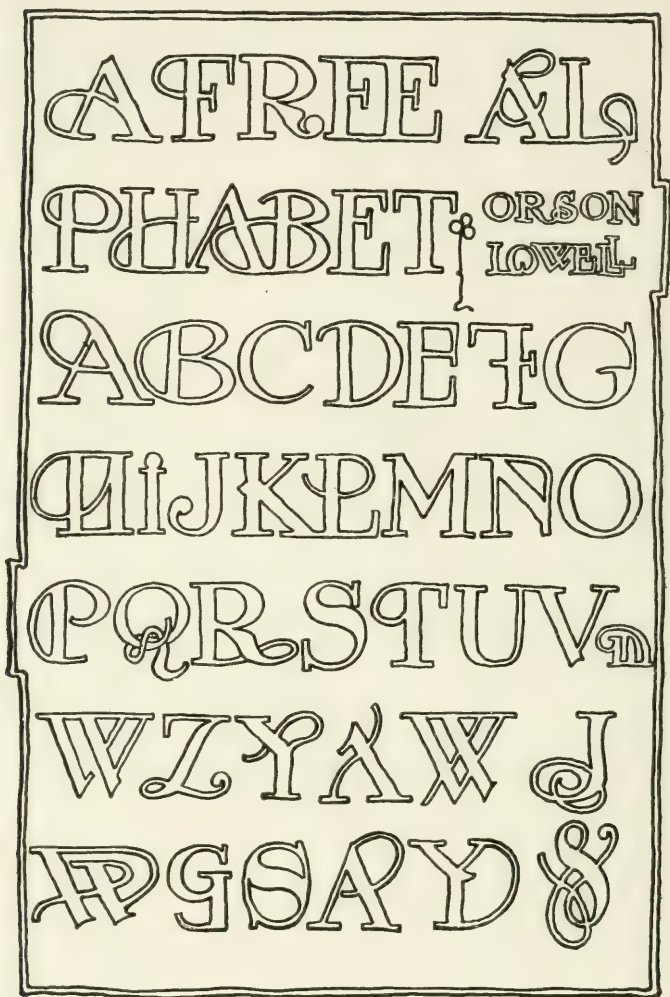 A FREE AL
PHABET
ORSON
LOWELL
ABCDEFG
HIJKLMNO
PQRSTUVM
WZYAWJ
HPGSAYD&